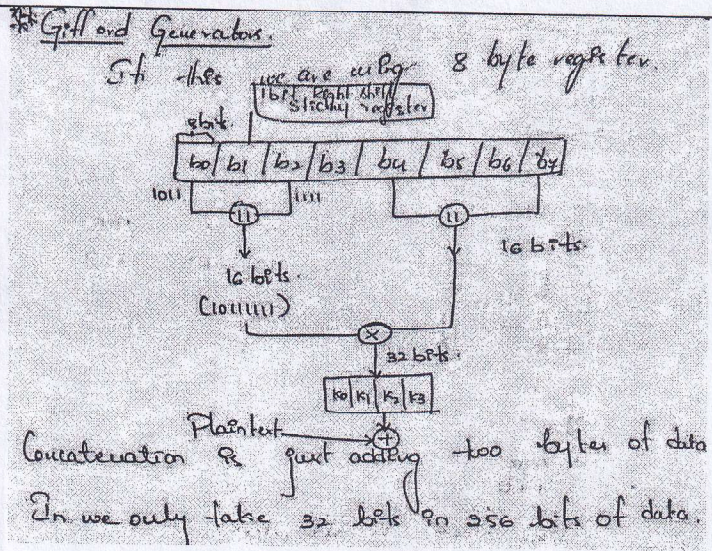 Gifford Generators.
In this we are using 8 byte register.
1bit Right shift
sticky register
8bits.
b0 b1 b2 b3 b4 b5 b6 b7
1011 1111
|| ||
16 bits. 16 bits.
(10111111)
×
32 bits.
K0 K1 K2 K3
Plaintext +
Concatenation is just adding two bytes of data
In we only take 32 bits in 256 bits of data.